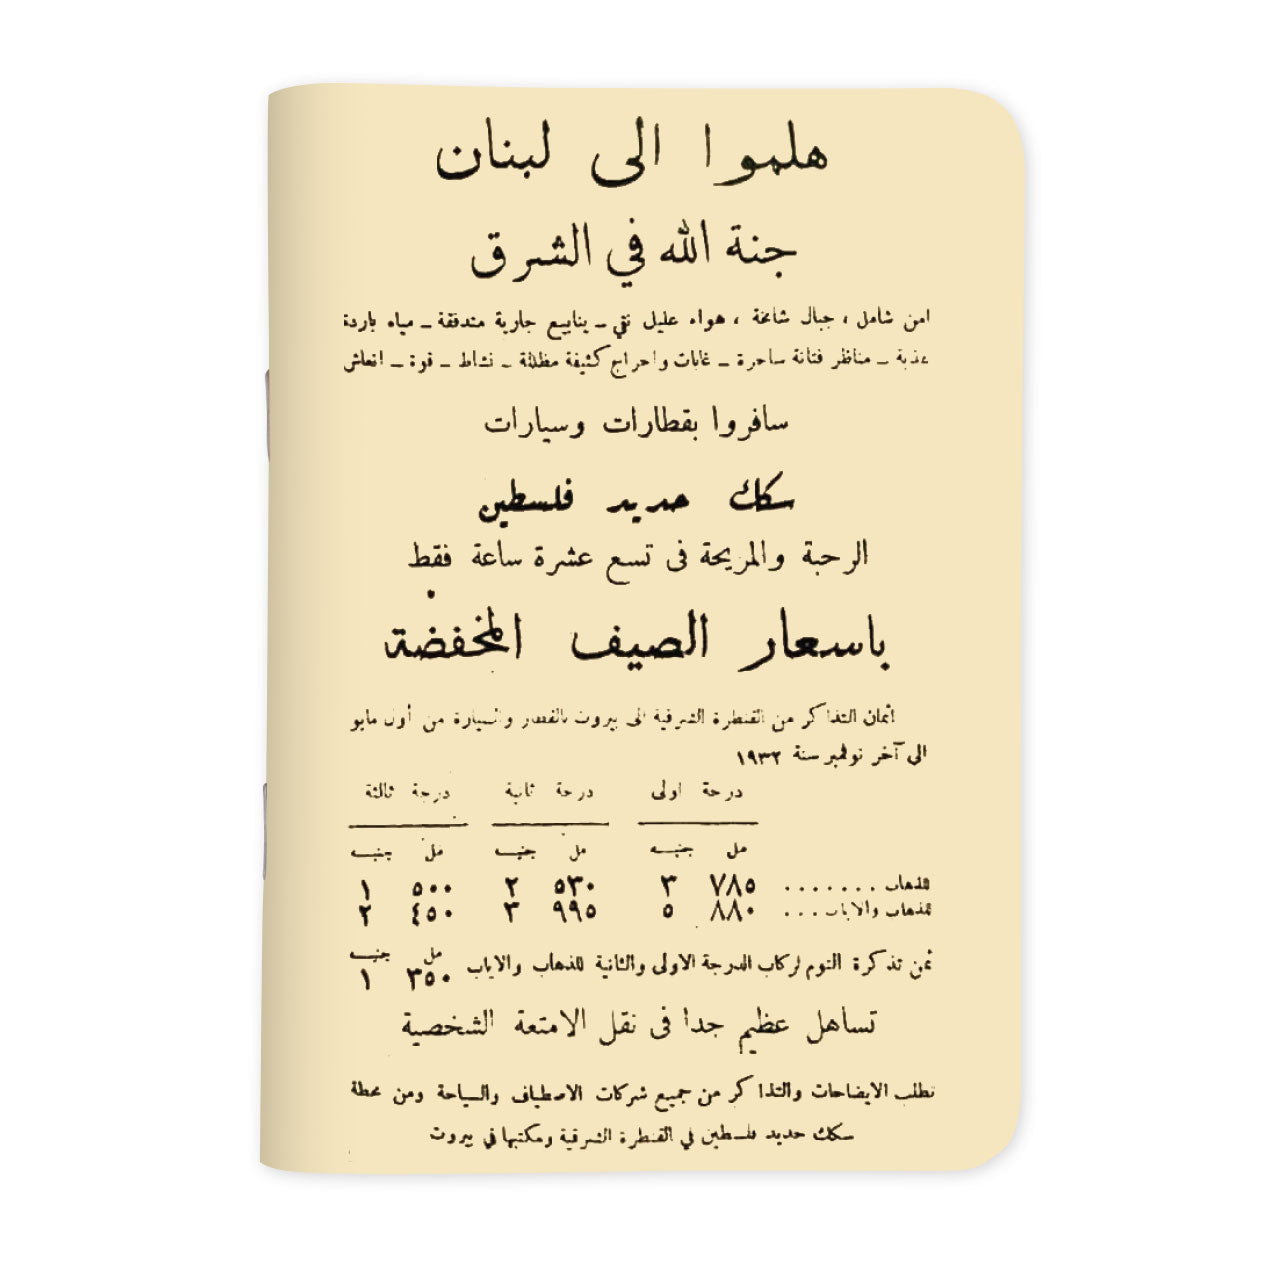 هلموا الى لبنان
جنة الله في الشرق
امن شامل ، جبال شامخة ، هواء عليل نقي – ينابيع جارية متدفقة – مياه باردة
عذبة – مناظر فتانة ساحرة – غابات واحراج كثيفة مظللة – نشاط – قوة – انعاش
سافروا بقطارات وسيارات
سكك حديد فلسطين
الرحبة والمريحة فى تسع عشرة ساعة فقط
باسعار الصيف المخفضة
أثمان التذاكر من القنطرة الشرقية الى بيروت بالقطار والسيارة من أول مايو
الى آخر نوفمبر سنة ١٩٣٢
درجة اولى درجة ثانية درجة ثالثة
مل جنيـه مل جنيـه مل جنيـه
للذهاب . . . . . . . ٧٨٥ ٣ ٥٣٠ ٢ ٥٠٠ ١
للذهاب والاياب . . . ٨٨٠ ٥ ٩٩٥ ٣ ٤٥٠ ٢
مل جنيـه
ثمن تذكرة النوم لركاب الدرجة الاولى والثانية للذهاب والاياب ٣٥٠ ١
تساهل عظيم جدا فى نقل الامتعة الشخصية
تطلب الايضاحات والتذاكر من جميع شركات الاصطياف والسياحة ومن محطة
سكك حديد فلسطين في القنطرة الشرقية ومكتبها في بيروت